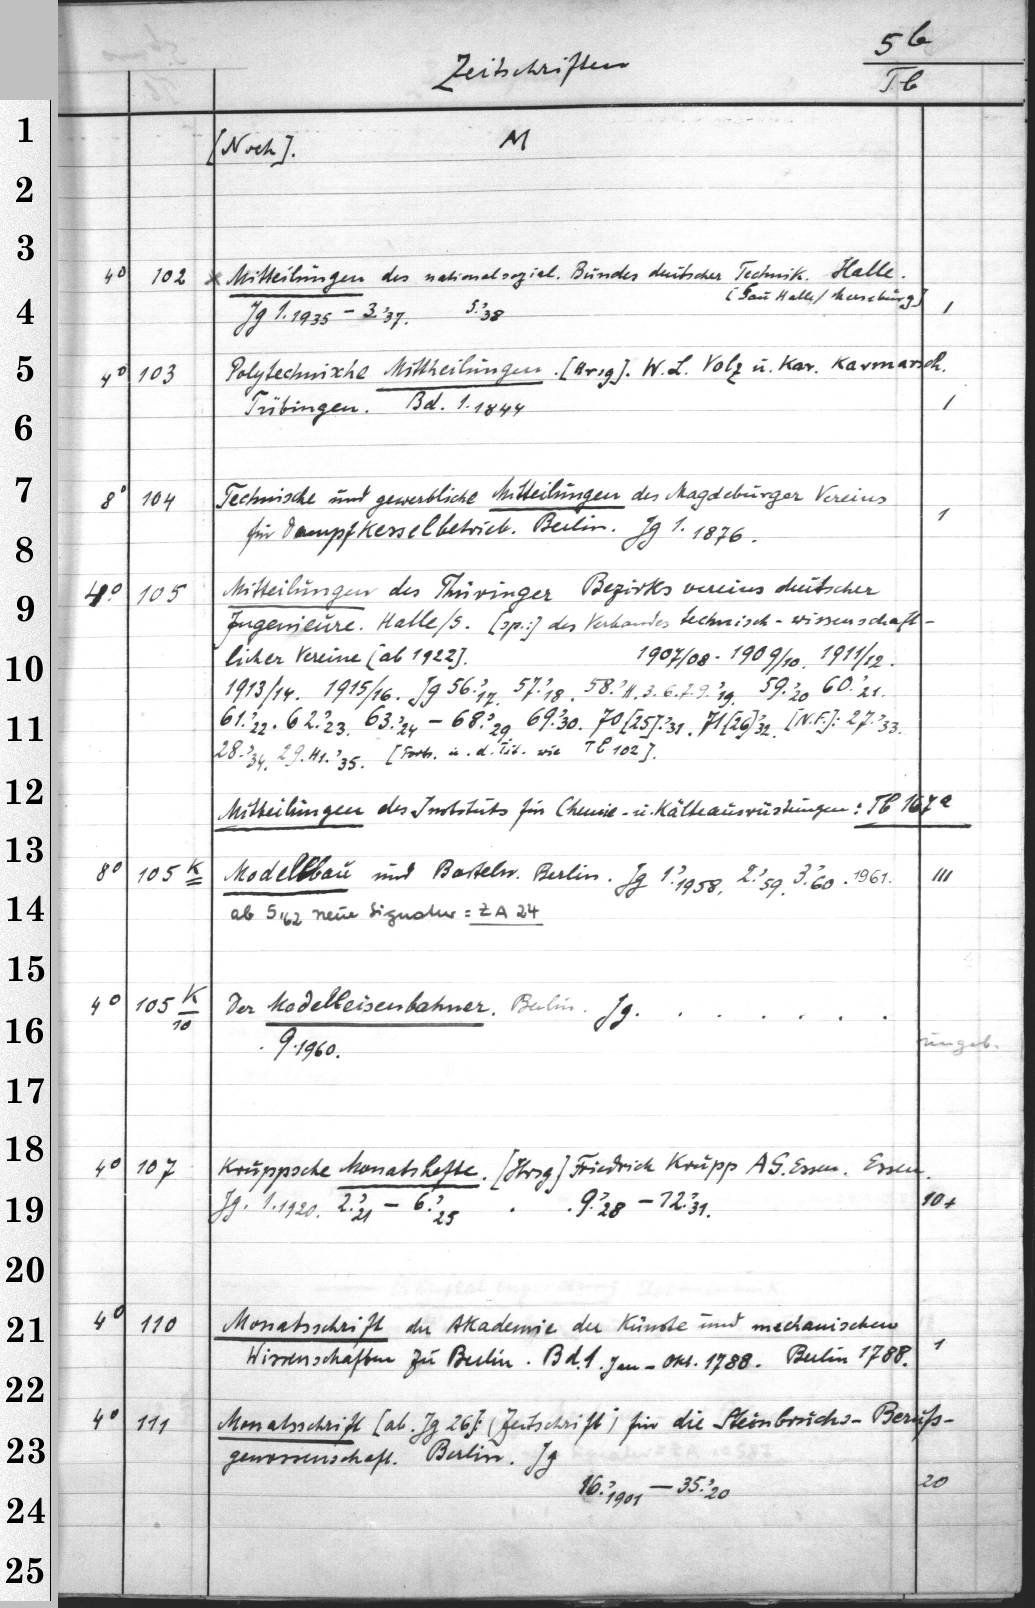 Zeitschriften
5b
Tb
1
[Noch]. M
2
3
4° 102 × Mitteilungen des nationalsozial. Bundes deutscher Technik. Halle.
[Gau Halle/Merseburg]
4 Jg 1.1935 – 3.'37. 5.'38 1
5 4° 103 Polytechnische Mittheilungen. [Hrsg]. W. L. Volz u. Kar. Karmarsch.
Tübingen. Bd. 1.1844 1
6
7 8° 104 Technische und gewerbliche Mitteilungen des Magdeburger Vereins
8 für Dampfkesselbetrieb. Berlin. Jg 1. 1876. 1
9 4° 105 Mitteilungen des Thüringer Bezirksvereins deutscher
Ingenieure. Halle/S. [sp.:] des Verbandes technisch-wissenschaft-
10 licher Vereine [ab 1922]. 1907/08 - 1909/10. 1911/12.
1913/14. 1915/16. Jg 56.'17. 57.'18. 58.'H.3.6.7.9.'19. 59.'20 60.'21.
11 61.'22. 62.'23. 63.'24 – 68.'29 69.'30. 70[25].'31. 71[26]'32. [N.F.]: 27.'33.
28.'34. 29.H1.'35. [Forts. u. d. Tit. wie Tb 102].
12 Mitteilungen des Instituts für Chemie- u. Kälteausrüstungen: Tb 167a
13 8° 105 K Modellbau und Basteln. Berlin. Jg 1.'1958. 2.'59. 3.'60. 1961. III
14 ab 5,'62 neue Signatur = ZA 24
15
4° 105 K/10 Der Modelleisenbahner. Berlin. Jg. . . . . . . .
16 . 9.1960. ungeb.
17
18 4° 107 Kruppsche Monatshefte. [Hrsg] Friedrich Krupp AG. Essen. Essen.
19 Jg. 1.1920. 2.'21 – 6.'25 . . 9.'28 – 12.'31. 10+
20
21 4° 110 Monatsschrift der Akademie der Künste und mechanischen
Wissenschaften zu Berlin. Bd. 1. Jan – Okt. 1788. Berlin 1788. 1
22
4° 111 Monatsschrift [ab. Jg 26]: (Zeitschrift) für die Steinbruchs-Berufs-
23 genossenschaft. Berlin. Jg
16.'1901 – 35.'20 20
24
25